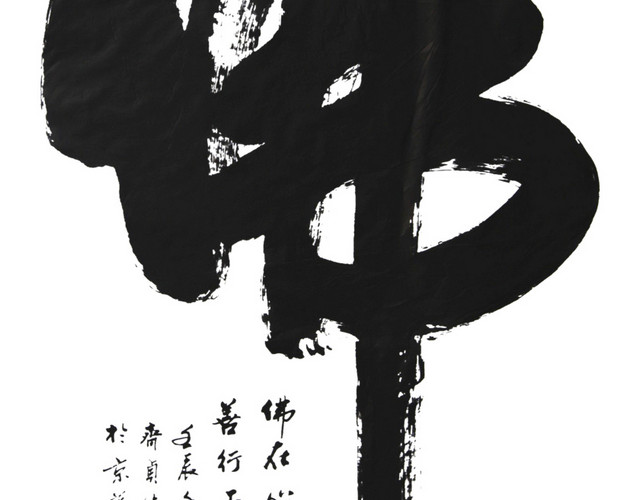 佛
佛在
善行
壬辰
齋貞
於京